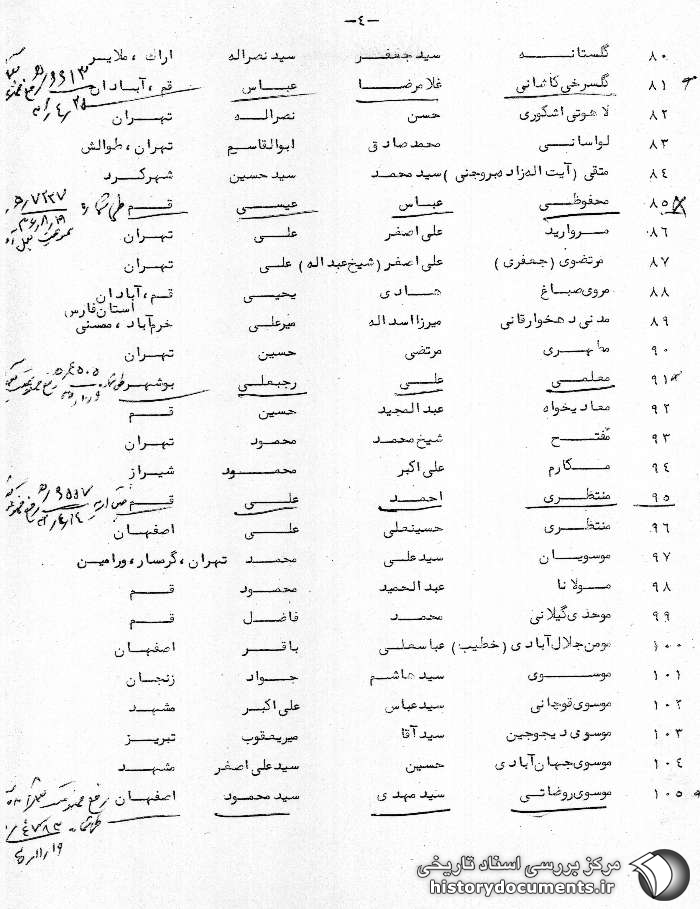 -٤-
۸۰ گلستانه سید جعفر سید نصراله اراك ، ملایر
۸۱ گلسرخی کاشانی غلامرضا عباس قم ، آبادان
۸۲ لاهوتی اشکوری حسن نصراله تهران
۸۳ لواسانی محمد صادق ابوالقاسم تهران ، طوالش
۸٤ متقی (آیت اله زاده بروجنی) سید محمد سید حسین شهرکرد
۸۵ محفوظی عباس عیسی قم
۸۶ مروارید علی اصغر علی تهران
۸۷ مرتضوی (جعفری) علی اصغر (شیخ عبداله) علی تهران
۸۸ مروی صباغ هادی یحیی قم ، آبادان
استان فارس
۸۹ مدنی دهخوارقانی میرزا اسداله میرعلی خرم آباد ، ممسنی
۹۰ مطهری مرتضی حسین تهران
۹۱ معلمی علی رجبعلی بوشهر
۹۲ معادیخواه عبدالمجید حسین قم
۹۳ مفتح شیخ محمد محمود تهران
۹٤ مکارم علی اکبر محمود شیراز
۹۵ منتظری احمد علی قم
۹۶ منتظری حسینعلی علی اصفهان
۹۷ موسویان سید علی محمد تهران ، گرمسار ، ورامین
۹۸ مولانا عبدالحمید محمود قم
۹۹ موحدی گیلانی محمد فاضل قم
۱۰۰ مومن جلال آبادی (خطیب) عباسعلی باقر اصفهان
۱۰۱ موسوی سید هاشم جواد زنجان
۱۰۲ موسوی قوچانی سید عباس علی اکبر مشهد
۱۰۳ موسوی دیجوجین سید آقا میریعقوب تبریز
۱۰٤ موسوی جهان آبادی حسین سید علی اصغر مشهد
۱۰۵ موسوی روضاتی سید مهدی سید محمود اصفهان
مرکز بررسی اسناد تاریخی
historydocuments.ir